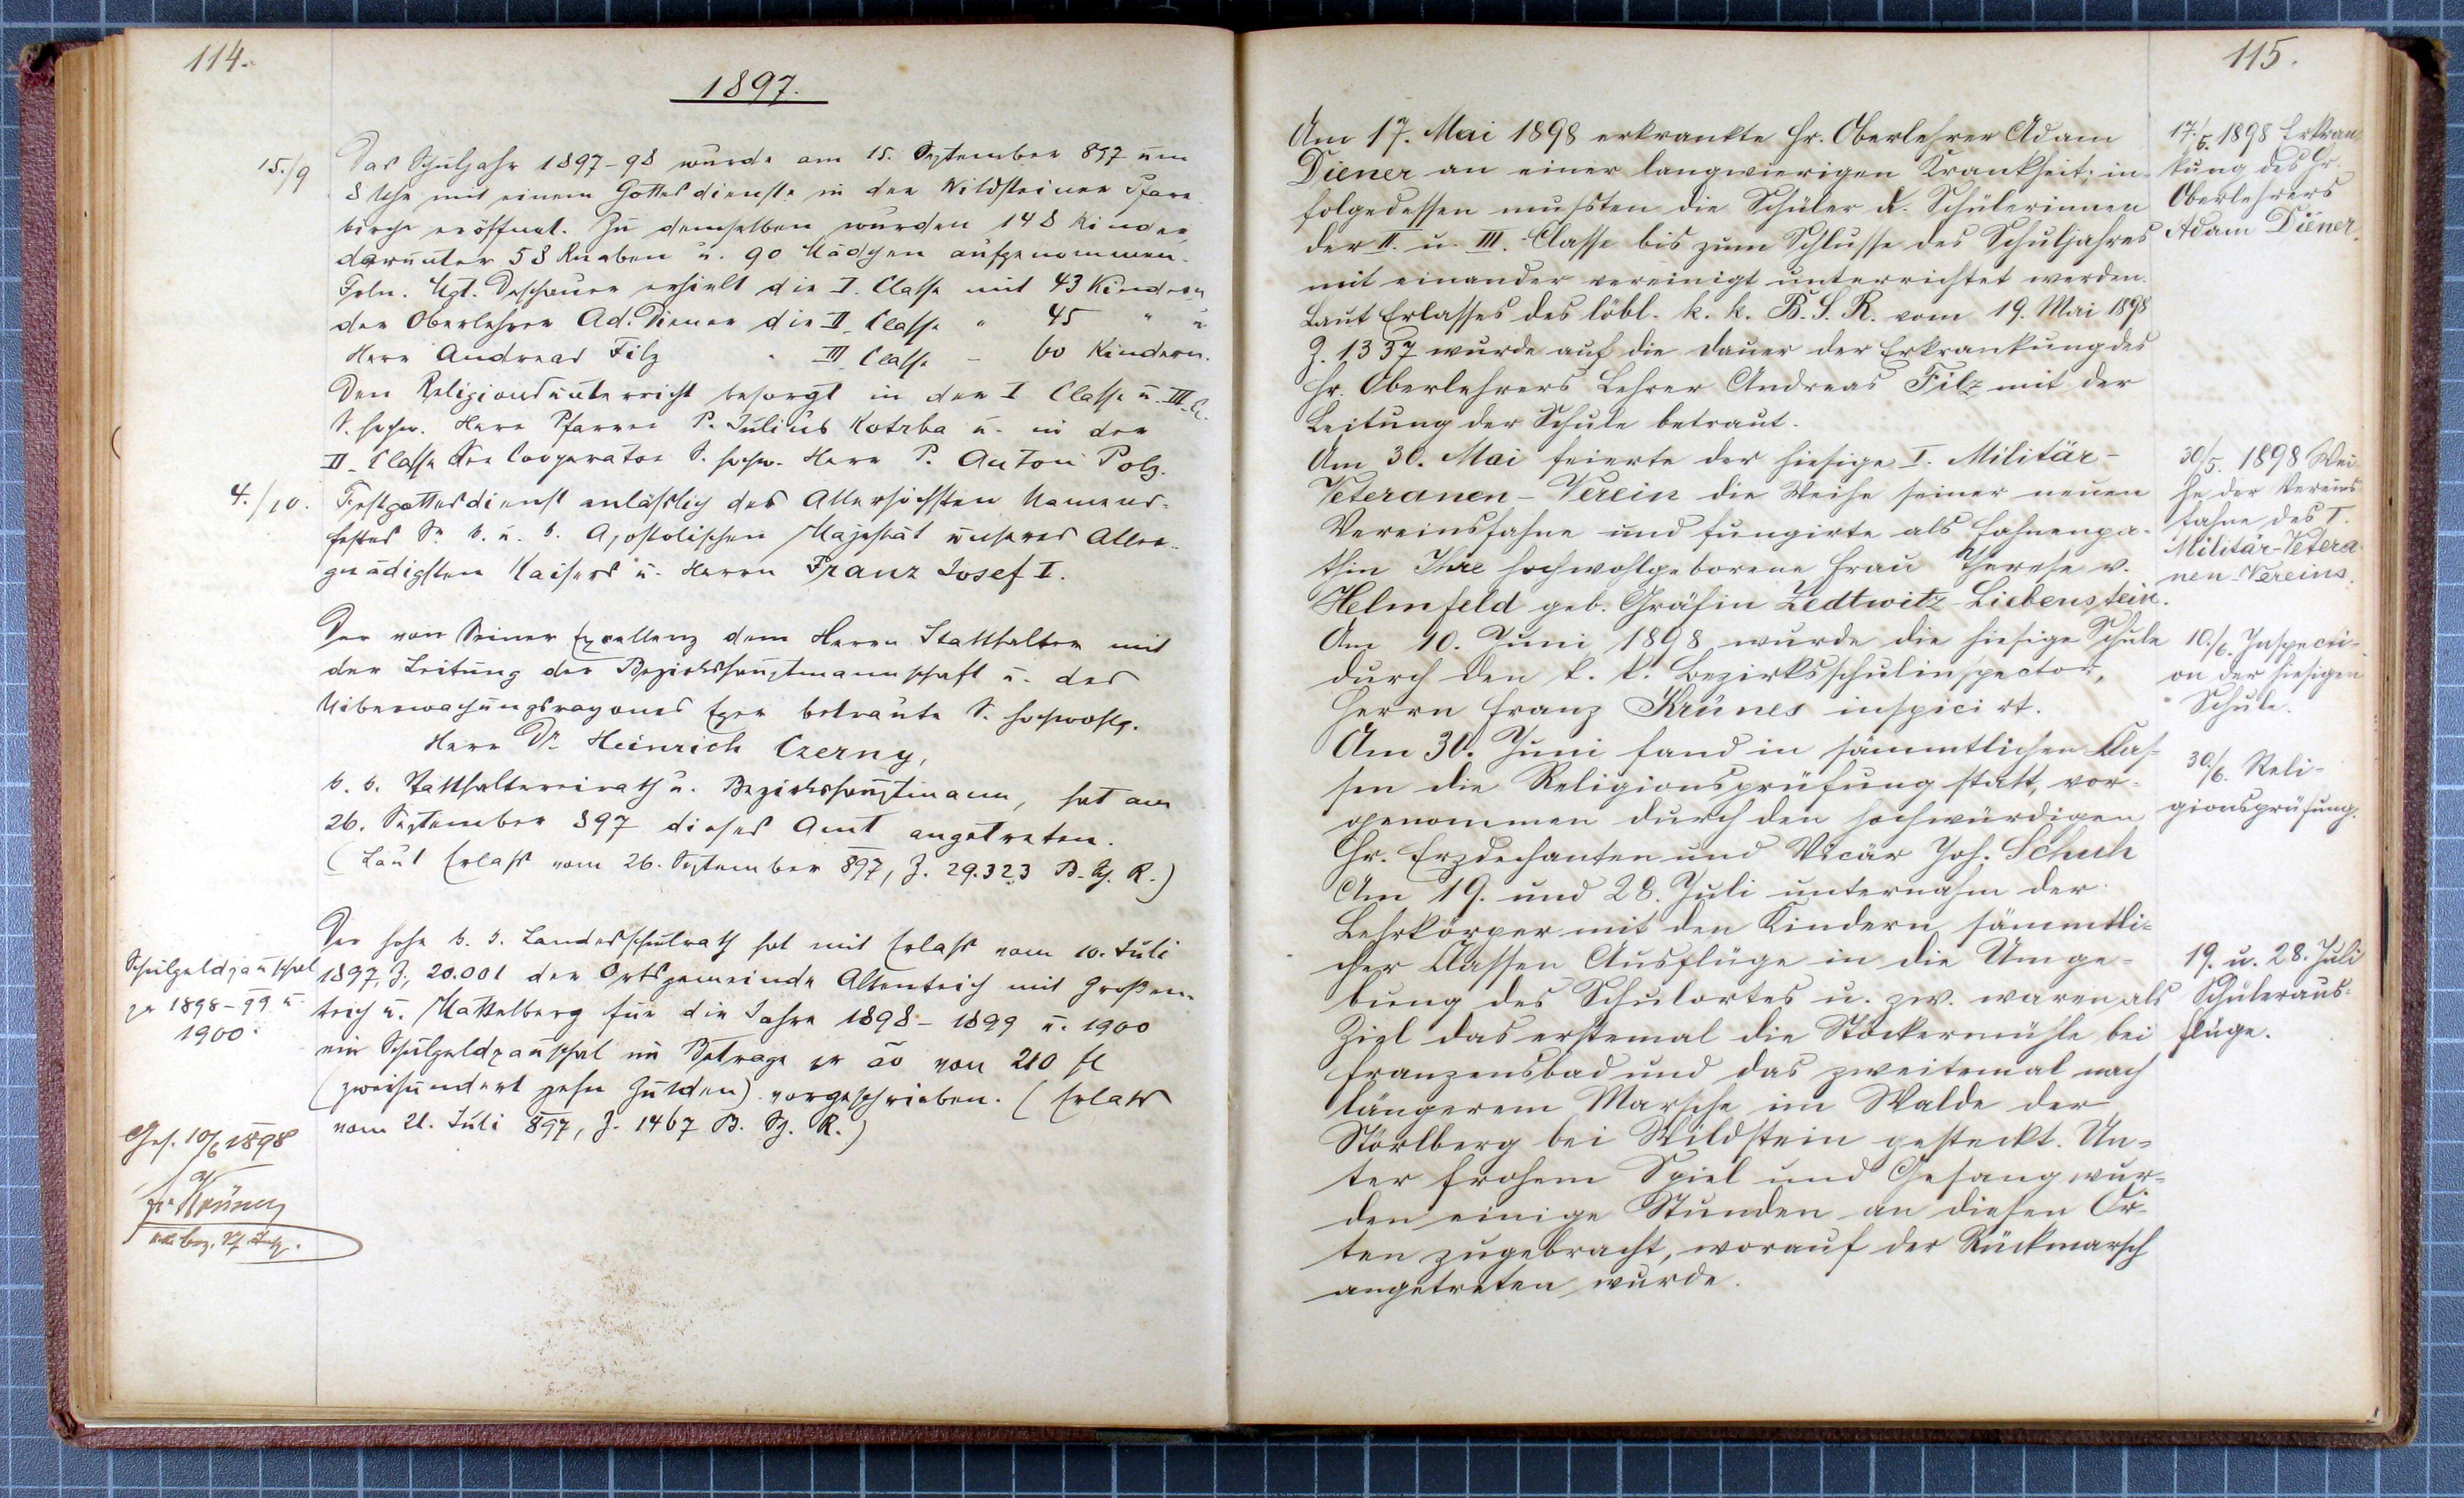 114.
1897.
15./9
Das Schuljahr 1897-98 wurde am 15. September 897 um
8 Uhr mit einem Gottesdienste in der Wildsteiner Pfarr-
kirche eröffnet. Zu demselben wurden 148 Kinder,
darunter 58 Knaben u. 90 Mädchen aufgenommen.
Frln. Mgt. Deschauer erhielt die I. Classe mit 43 Kindern,
der Oberlehrer Ad. Diener die II. Classe " 45 " u
Herr Andreas Filz " III. Classe - 60 Kindern.
Den Religionsunterricht besorgt in der I Classe u. III. Cl.
S. hochw. Herr Pfarrer P. Julius Kotrba u. in der
II. Classe der Cooperator S. hochw. Herr P. Anton Polz.
4./10.
Festgottesdienst anläßlich des Allerhöchsten Namens-
festes Sr k. u. k. Apostolischen Majestät unseres Aller-
gnädigsten Kaisers u. Herrn Franz Josef I.
Der von Seiner Excellenz dem Herrn Statthalter mit
der Leitung der Bezirkshauptmannschaft u. des
Uiberwachungsrayones Eger betraute S. hochwohlg.
Herr Dr. Heinrich Czerny,
k. k. Statthaltereirath u. Bezirkshauptmann, hat am
26. September 897 dieses Amt angetreten.
(Laut Erlaß vom 26. September 897, Z. 29.323 B. Sch. R.)
Schulgeldpauschal
pr 1898-99 u.
1900.
Der hohe k. k. Landesschulrath hat mit Erlaß vom 10. Juli
1897, Z. 20.001 der Ortsgemeinde Altenteich mit Großen-
teich u. Mattelberg für die Jahre 1898 - 1899 u. 1900
ein Schulgeldpauschal im Betrage pr ao von 210 fl
(zweihundert zehn Gulden) vorgeschrieben. (Erlaß
vom 21. Juli 897, Z. 1467 B. Sch. R.)
Ges. 10/6 1898
Fr. Krünes
k.k. Bez. Sch. Insp.
115.
Am 17. Mai 1898 erkrankte Hr. Oberlehrer Adam
Diener an einer langwierigen Krankheit; in-
folgedessen mußten die Schüler u. Schülerinnen
der II. u. III. Classe bis zum Schlusse des Schuljahres
mit einander vereinigt unterrichtet werden.
Laut Erlasses des löbl. k. k. B. S. R. vom 19. Mai 1898
Z. 1337 wurde auf die Dauer der Erkrankung des
Hr. Oberlehrers Lehrer Andreas Filz mit der
Leitung der Schule betraut.
17./5. 1898 Erkran-
kung des Hr.
Oberlehrers
Adam Diener.
Am 30. Mai feierte der hiesige I. Militär-
Veteranen-Verein die Weihe seiner neuen
Vereinsfahne und fungirte als Fahnenpa-
thin Ihre hochwohlgeborene Frau Therese v.
Helmfeld geb. Gräfin Zedtwitz-Liebenstein.
30/5. 1898 Wei-
he der Vereins-
fahne des I.
Militär-Vetera-
nen-Vereins.
Am 10. Juni 1898 wurde die hiesige Schule
durch den k. k. Bezirksschulinspector,
Herrn Franz Krünes inspicirt.
10./6. Inspecti-
on der hiesigen
Schule.
Am 30. Juni fand in sämmtlichen Clas-
sen die Religionsprüfung statt, vor-
genommen durch den hochwürdigen
Hr. Erzdechanten und Vicär Joh. Schuh
30./6. Reli-
gionsprüfung.
Am 19. und 28. Juli unternahm der
Lehrkörper mit den Kindern sämmtli-
cher Classen Ausflüge in die Umge-
bung des Schulortes u. zw. waren als
Ziel das erstemal die Stöckermühle bei
Franzensbad und das zweitemal nach
längerem Marsche im Walde der
Störlberg bei Wildstein gesteckt. Un-
ter frohem Spiel und Gesang wur-
den einige Stunden an diesen Or-
ten zugebracht, worauf der Rückmarsch
angetreten wurde.
19. u. 28. Juli
Schüleraus-
flüge.